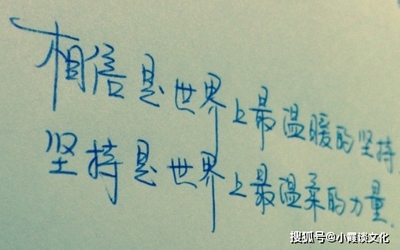 相信是世界上最温暖的坚持
坚持是世界上最温柔的力量.
搜狐号@小霞谈文化